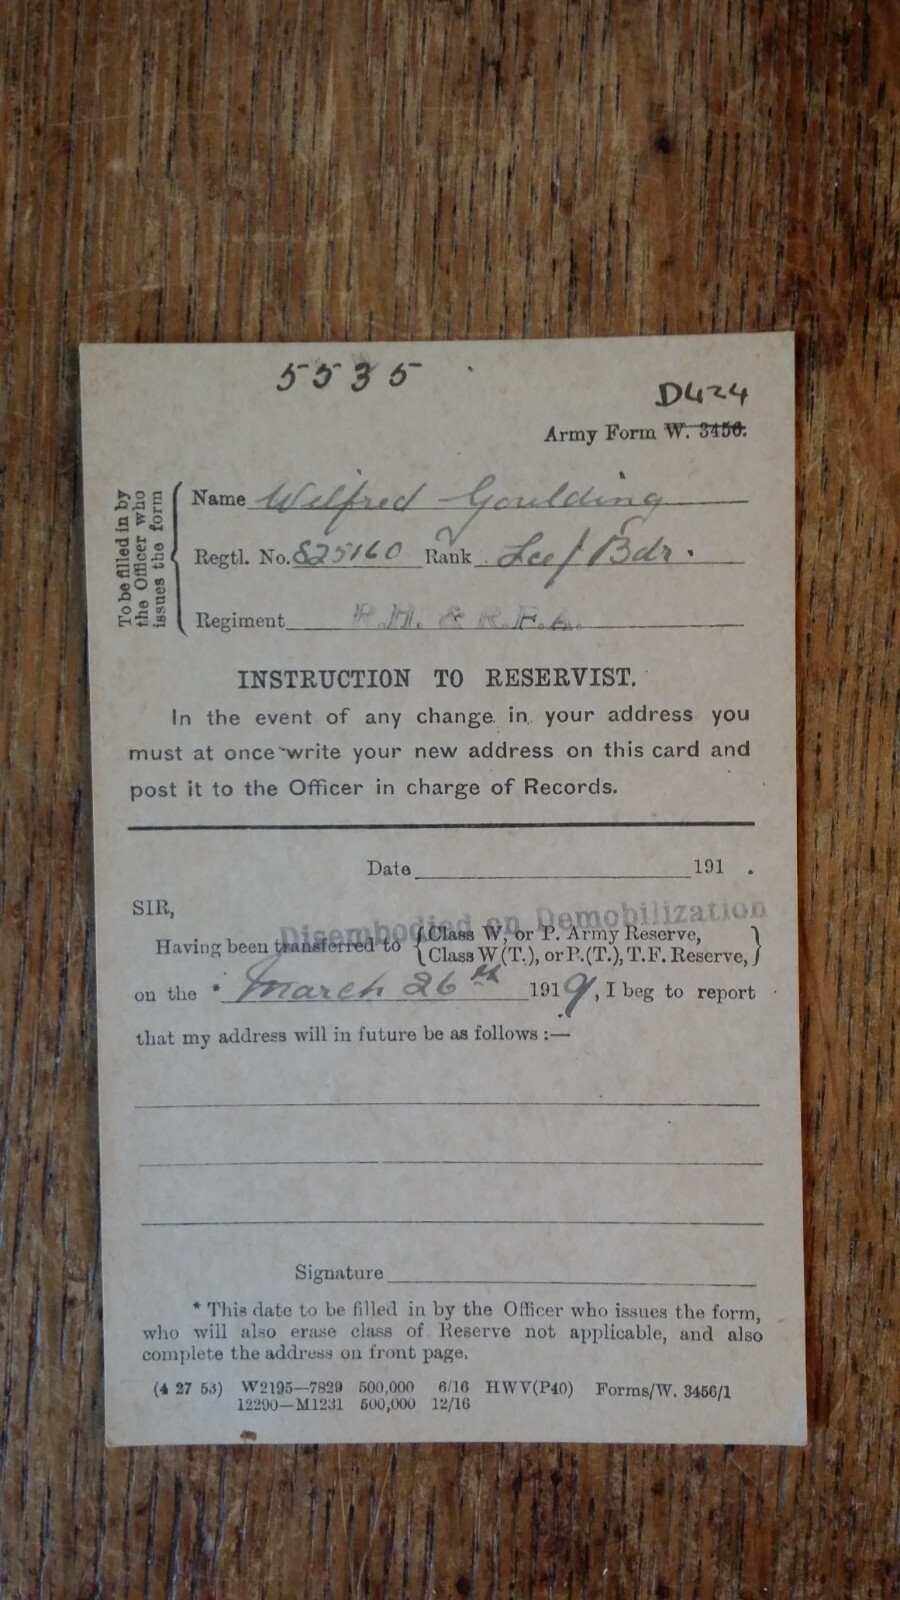 5535
D424
Army Form W. 3456.
To be filled in by
the Officer who
issues the form
Name Wilfred Goulding
Regtl. No. 825160 Rank Bdr.
Regiment R.H. & R.F.A.
INSTRUCTION TO RESERVIST.
In the event of any change in your address you
must at once write your new address on this card and
post it to the Officer in charge of Records.
Date 191 .
SIR,
Disembodied on Demobilization
Having been transferred to { Class W, or P. Army Reserve,
Class W(T.), or P.(T.), T.F. Reserve, }
on the * March 26th 1919, I beg to report
that my address will in future be as follows :—
Signature
* This date to be filled in by the Officer who issues the form,
who will also erase class of Reserve not applicable, and also
complete the address on front page.
(4 27 53) W2195—7829 500,000 6/16 HWV(P40) Forms/W. 3456/1
12290—M1231 500,000 12/16